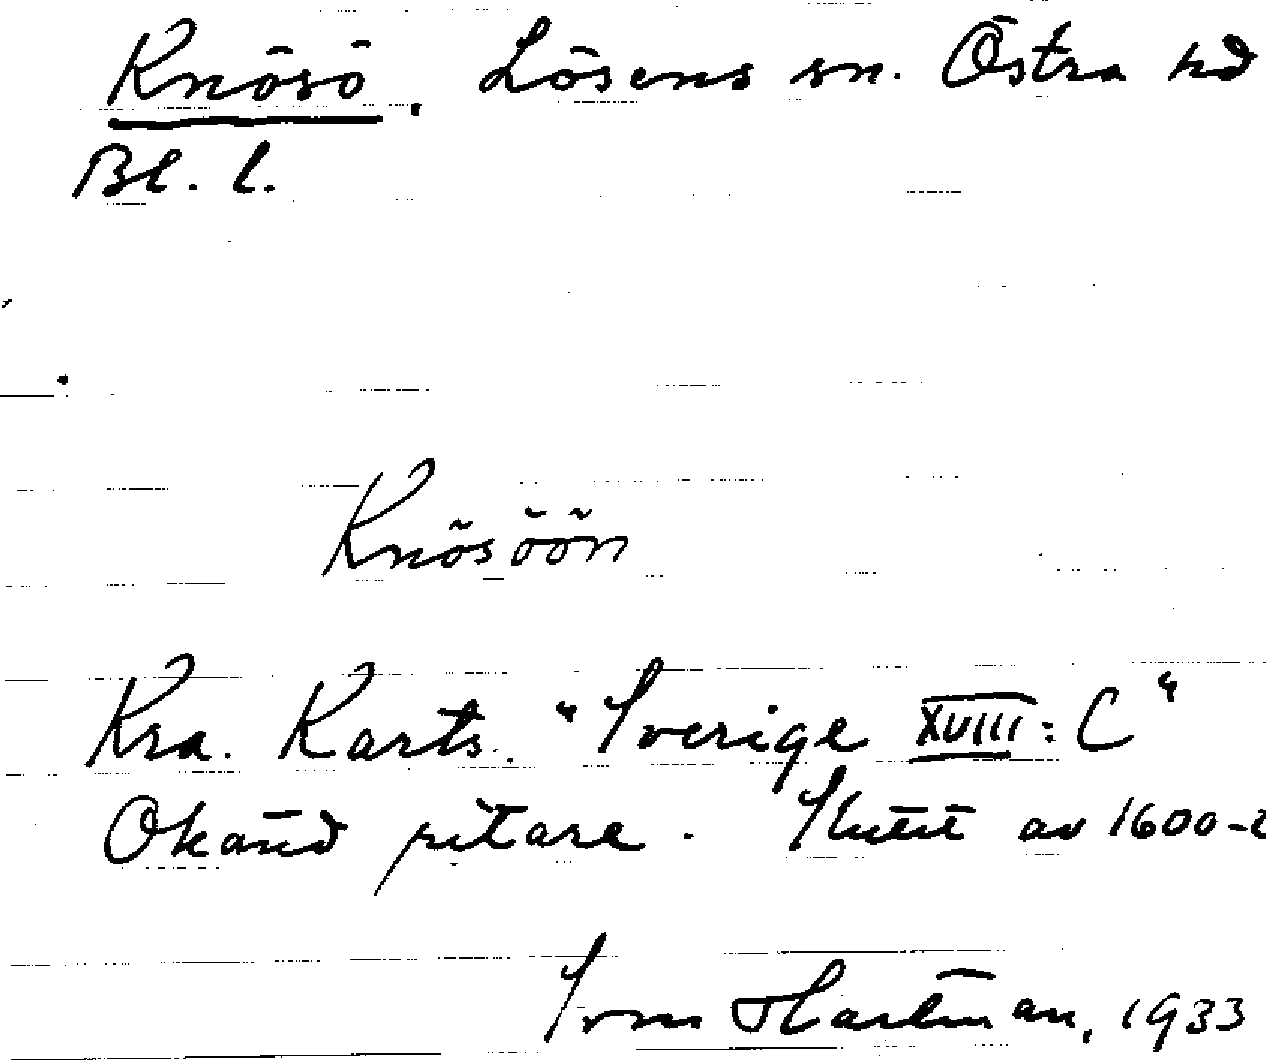 Knösö. Lösens sn. Östra hd
Bl. l.
Knösöön
Kra. Karts. "Sverige XVIII: C"
Okänd ritare. Slutet av 1600-t
Sven Hartman, 1933